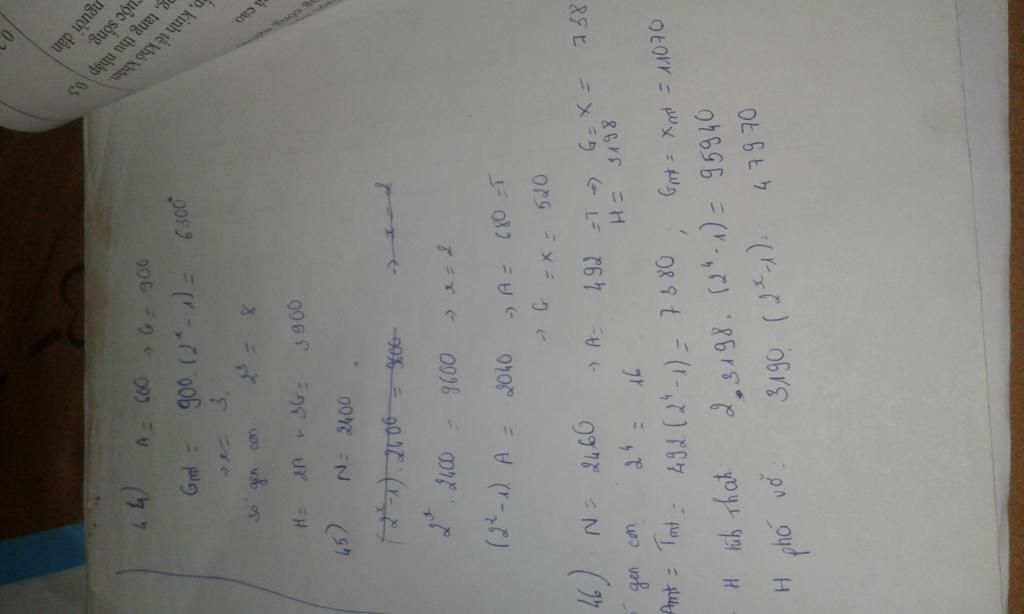 44) A = 600 → G = 900
Gmt = 900.(2^x - 1) = 6300
→ x = 3
Số gen con. 2^3 = 8
H = 2A + 3G = 3900
45) N = 2400
(2^x - 1).2400 = 9600 → x = 2
2^x . 2400 = 9600 → x = 2
(2^x - 1). A = 2040 → A = 680 = T
→ G = X = 520
46) N = 2460 → A = 492 = T → G = X = 738
gen con. 2^4 = 16 H = 3198
Amt = Tmt = 492(2^4 - 1) = 7380 ; Gmt = Xmt = 11070
H hih thah: 2.3198.(2^4 - 1) = 95940
H phá vỡ: 3190.(2^x - 1) = 47970
khó khăn.
tang thu nhập
cuộc sống
người dân
0,5
cao.